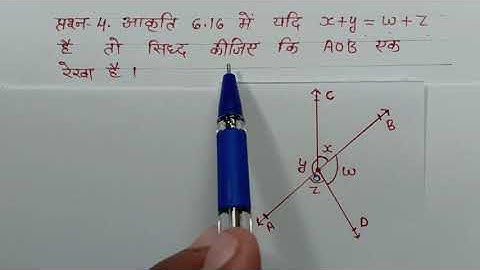 प्रश्न-4. आकृति 6.16 में यदि x+y = w+z
है तो सिध्द कीजिए कि AOB एक
रेखा है।
C
B
x
y
w
z
A
D